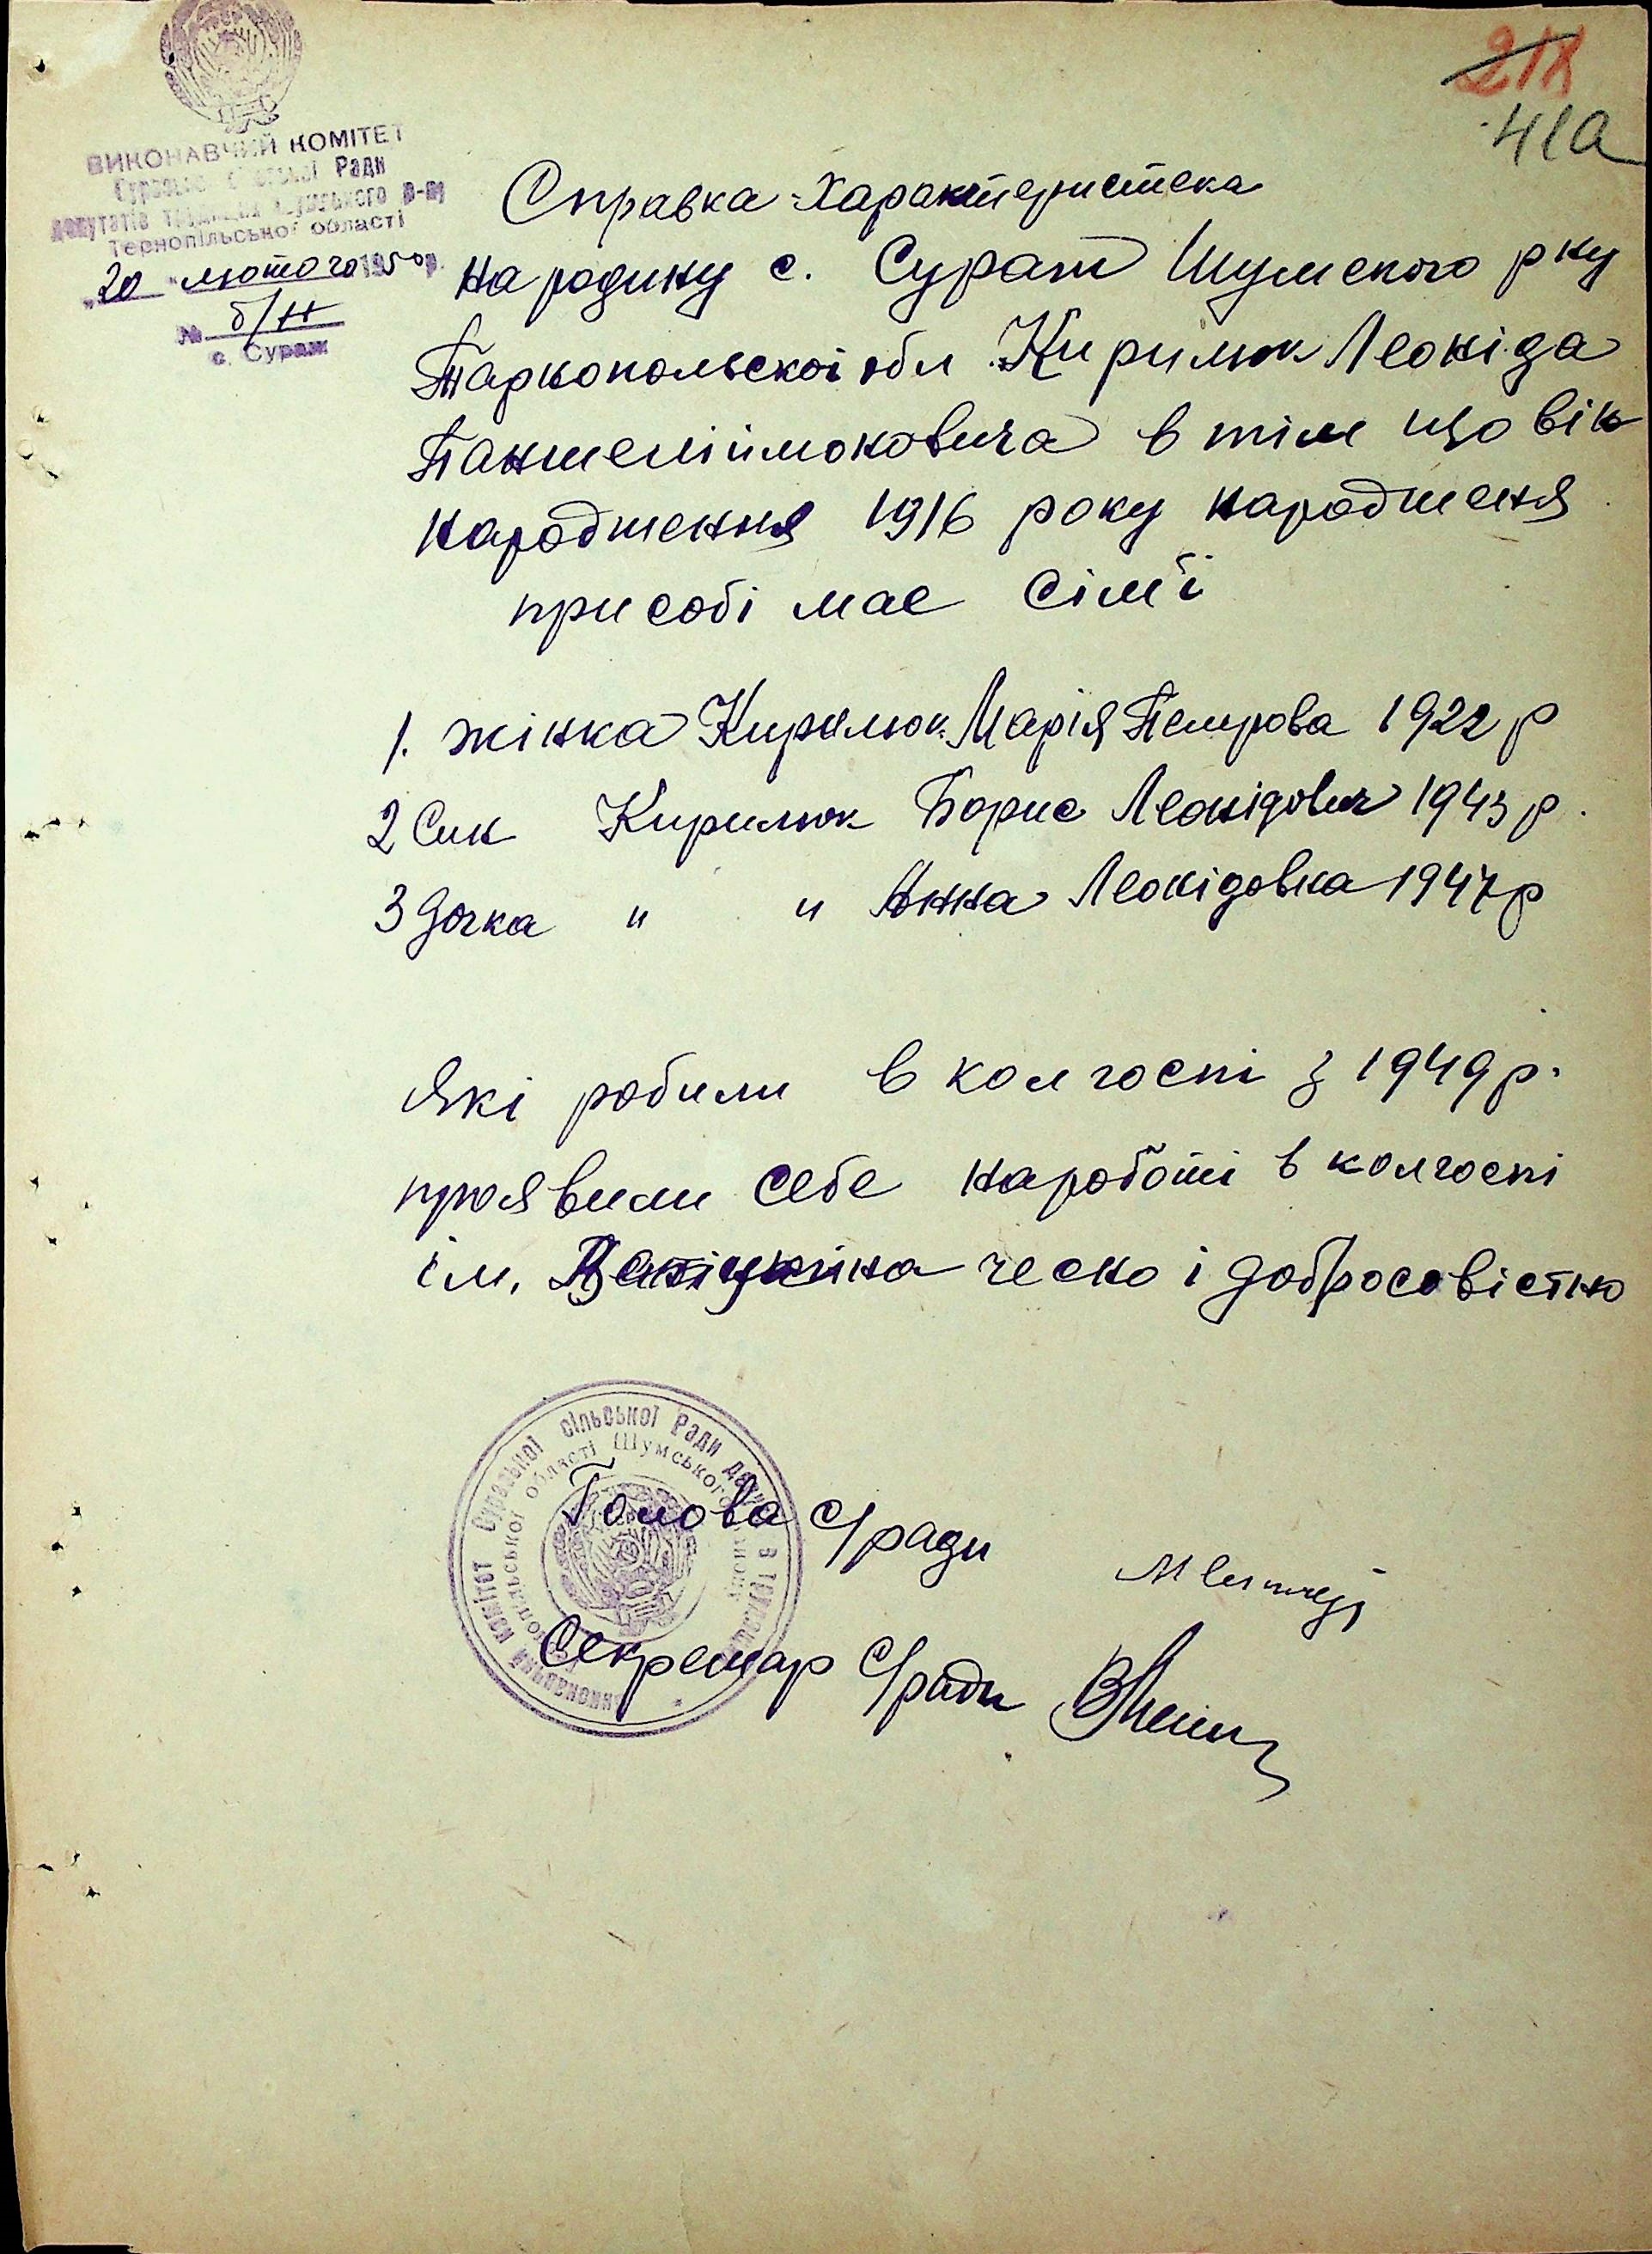 218
41а
ВИКОНАВЧИЙ КОМІТЕТ
Сураської сільської Ради
депутатів трудящих Шумського р-ну
Тернопільської області
„20" лютого 1950 р.
№ б/н
с. Сураж
Справка-Характеристека
на родину с. Сураж Шумского рну
Тарнопольскоі обл. Кирилюк Леоніда
Пантелііймоновича в тім що він
народження 1916 року народженя
при собі має Сімї
1. жінка Кирилюк Марія Петрова 1922 р
2 Син Кирилюк Борис Леонідович 1943 р.
3 Дочка " " Анна Леонідовна 1947 р
Які робили в колгоспі з 1949 р.
проявили себе на роботі в колгоспі
ім. чесно і добросовістно
Виконавчий комітет Сураської сільської Ради депутатів трудящих
Тернопільської області Шумського району
Голова С/ради
Секретар С/ради